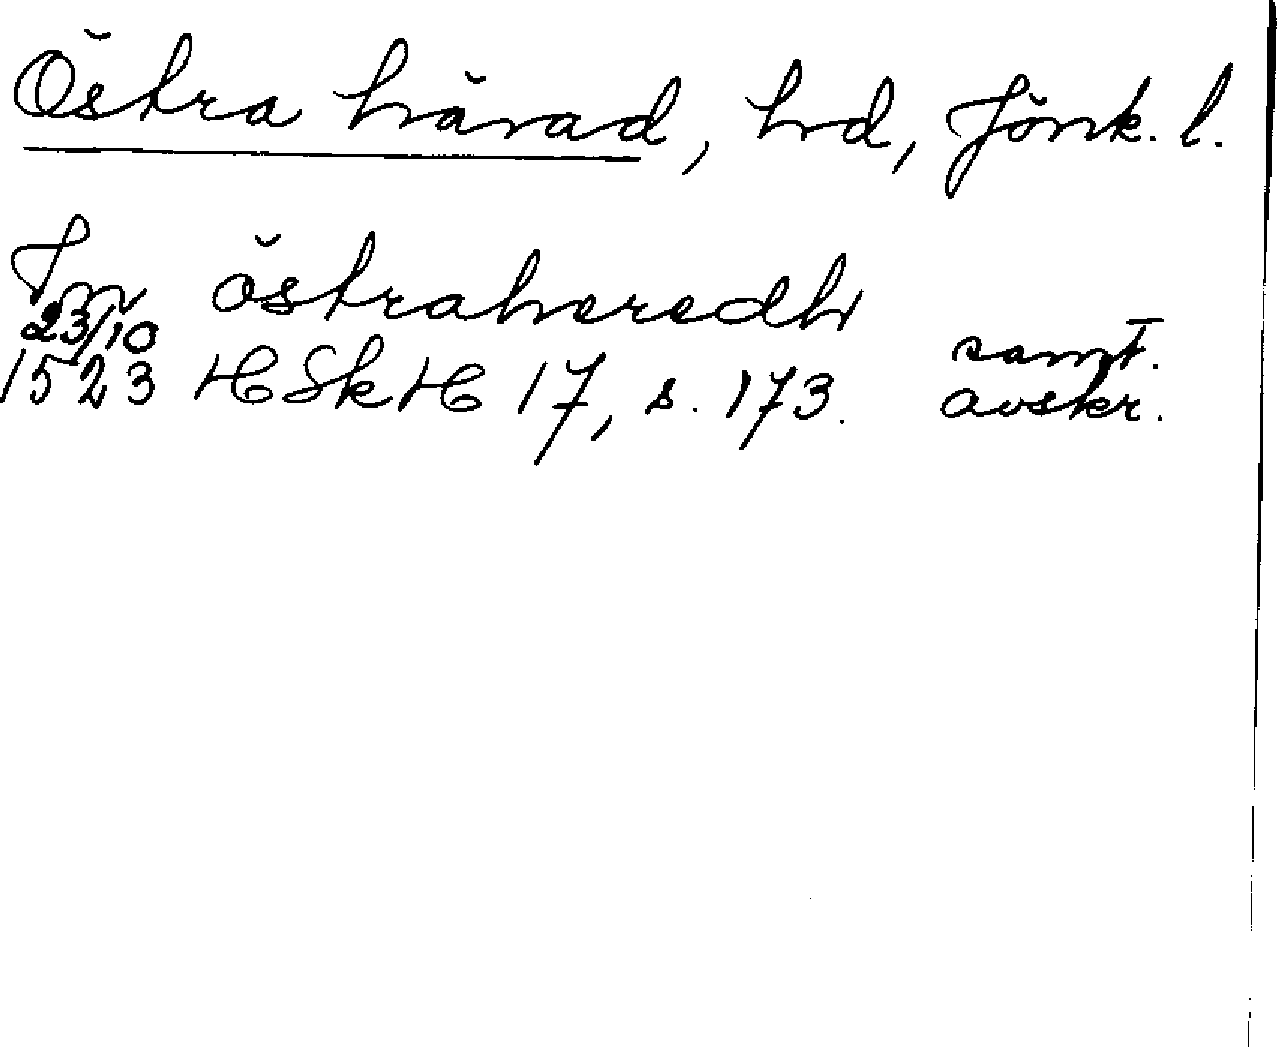 Östra härad, hd, Jönk. l.
Jn östraheredh
23/10 samt.
1523 HSkH 17, s. 173. avskr.